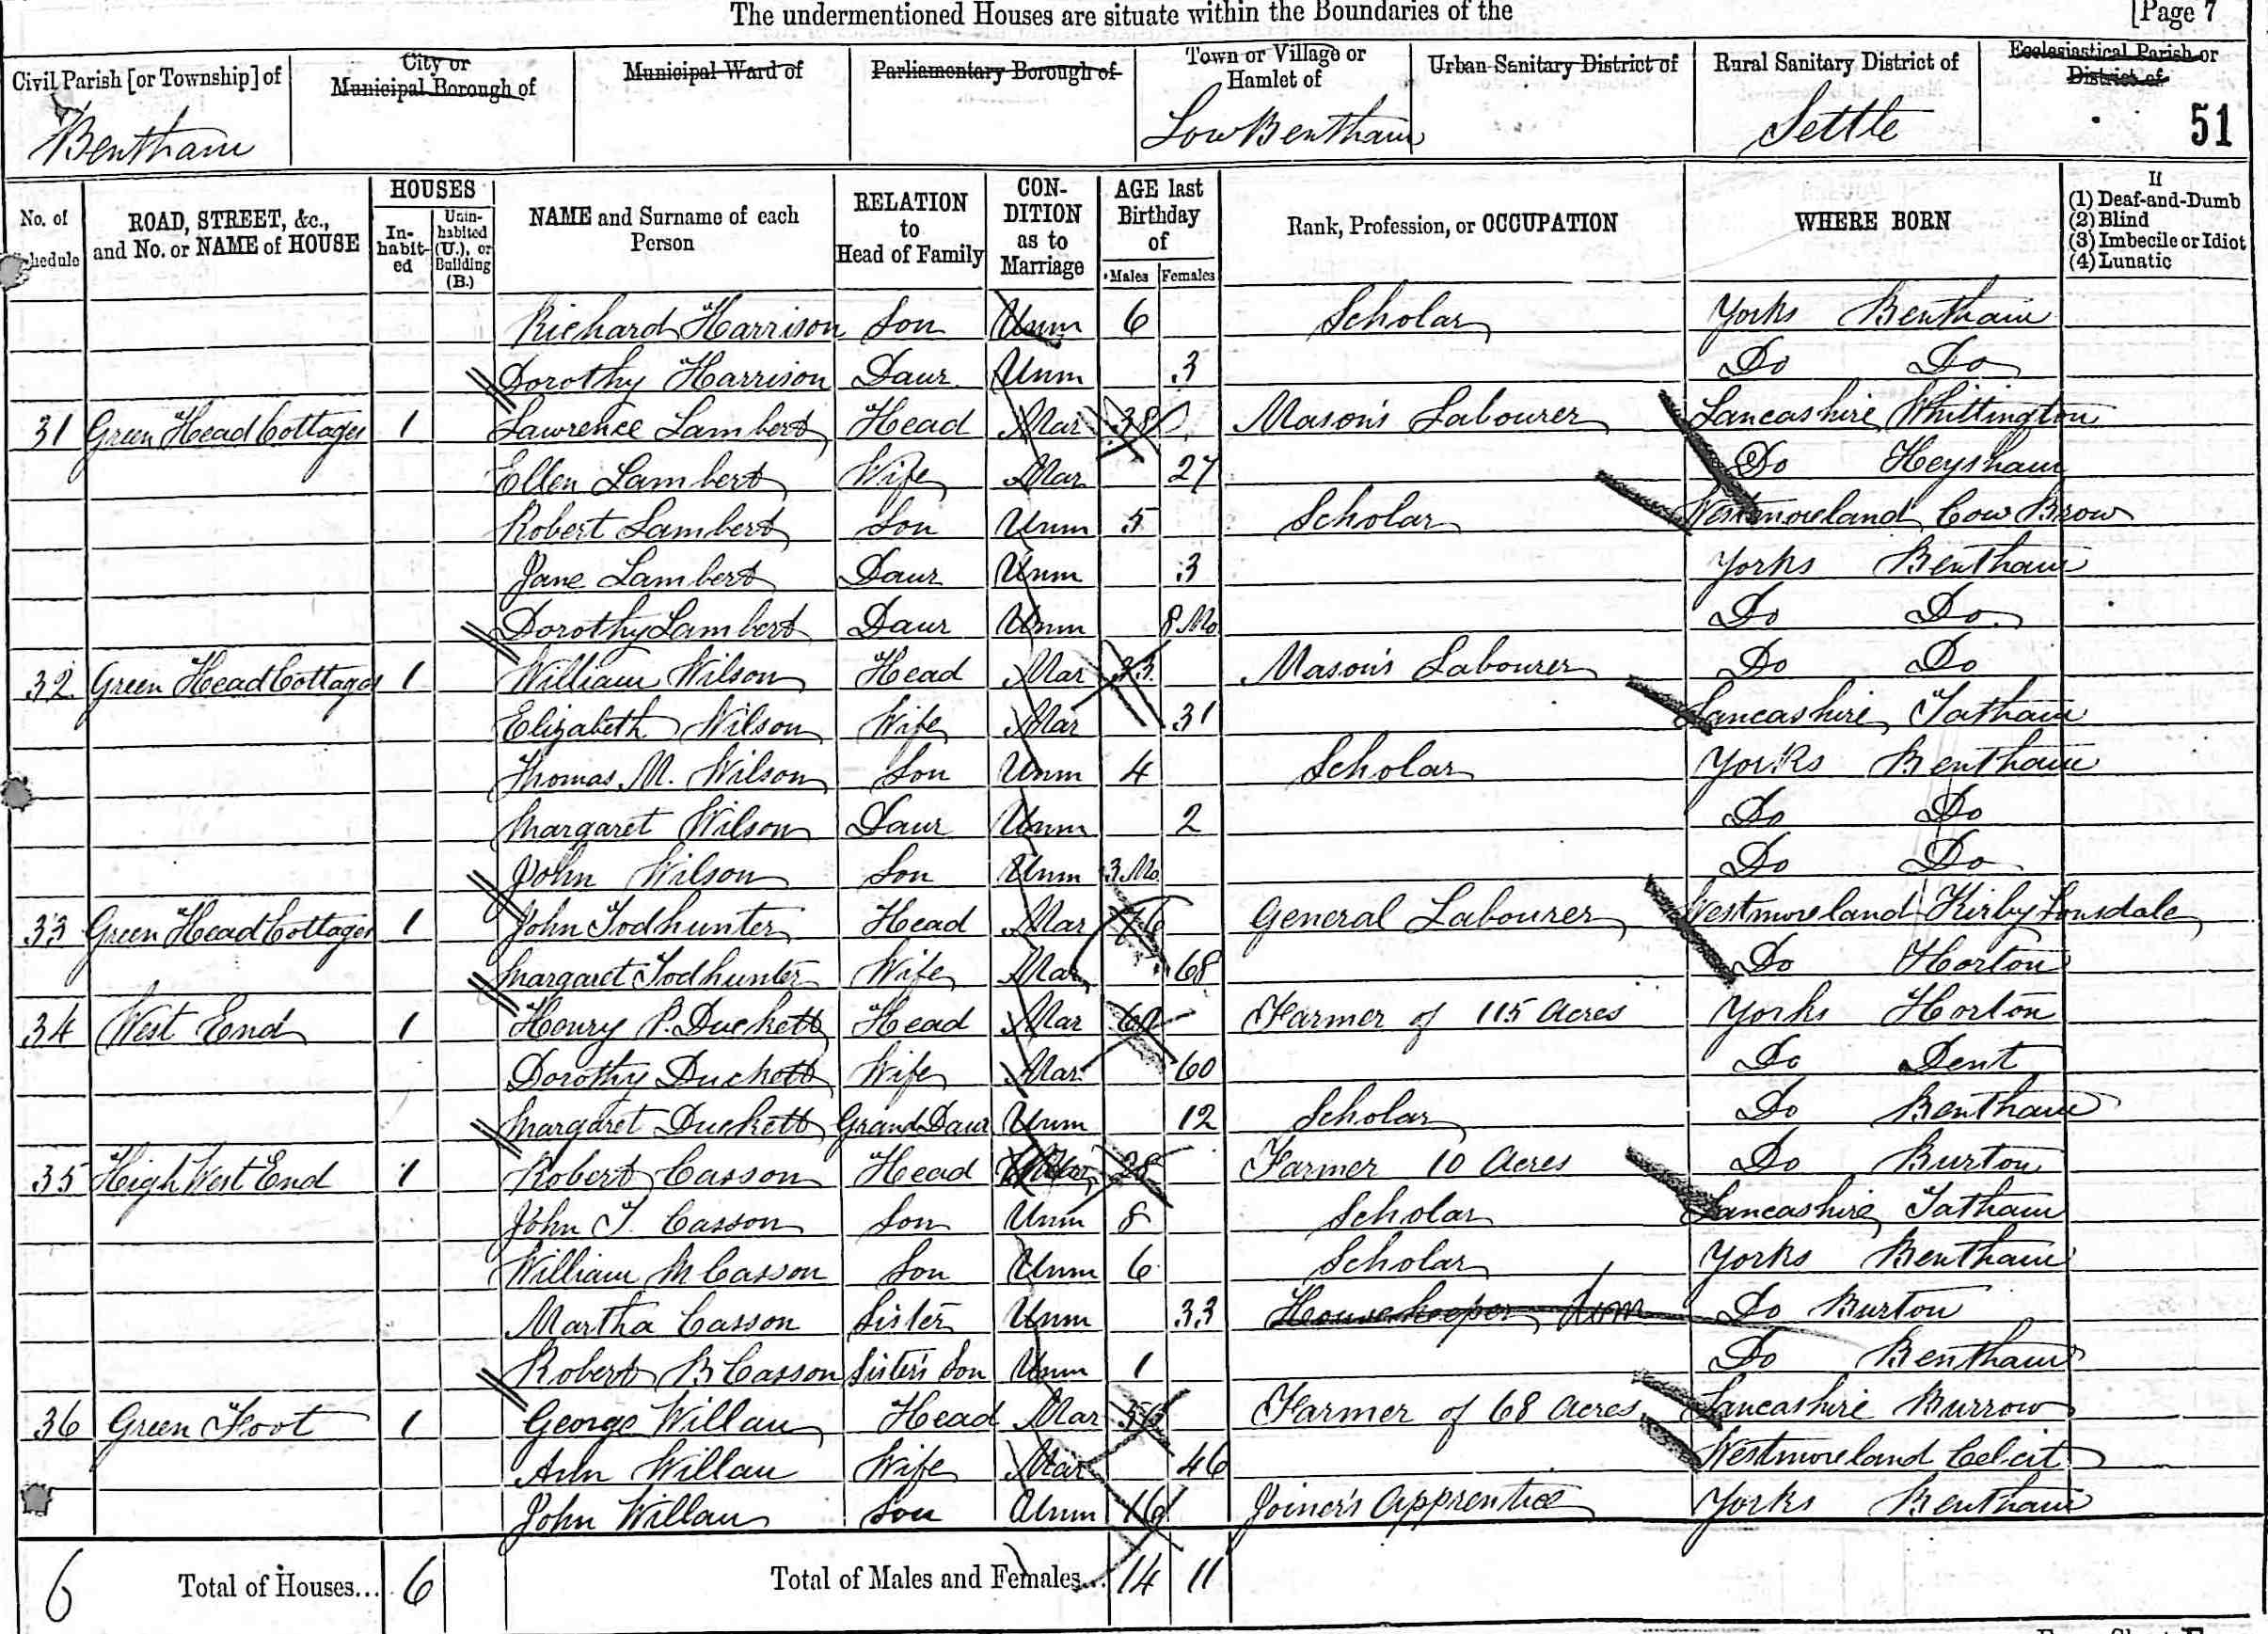 The undermentioned Houses are situate within the Boundaries of the [Page 7
Civil Parish [or Township] of
Bentham
City or Municipal Borough of
Municipal Ward of
Parliamentary Borough of
Town or Village or Hamlet of
Low Bentham
Urban Sanitary District of
Rural Sanitary District of
Settle
Ecclesiastical Parish or District of
51
No. of Schedule
ROAD, STREET, &c., and No. or NAME of HOUSE
HOUSES
In-habit-ed
Unin-habited (U.), or Building (B.)
NAME and Surname of each Person
RELATION to Head of Family
CON-DITION as to Marriage
AGE last Birthday of
Males Females
Rank, Profession, or OCCUPATION
WHERE BORN
If
(1) Deaf-and-Dumb
(2) Blind
(3) Imbecile or Idiot
(4) Lunatic
Richard Harrison Son Unm 6 Scholar Yorks Bentham
Dorothy Harrison Daur Unm 3 Do Do
31 Green Head Cottages 1 Lawrence Lambert Head Mar 38 Mason's Labourer Lancashire Whittington
Ellen Lambert Wife Mar 27 Do Heysham
Robert Lambert Son Unm 5 Scholar Westmoreland Cow Brow
Jane Lambert Daur Unm 3 Yorks Bentham
Dorothy Lambert Daur Unm 8 Mo Do Do
32 Green Head Cottages 1 William Wilson Head Mar 33 Mason's Labourer Do Do
Elizabeth Wilson Wife Mar 31 Lancashire Tatham
Thomas M. Wilson Son Unm 4 Scholar Yorks Bentham
Margaret Wilson Daur Unm 2 Do Do
John Wilson Son Unm 3 Mo Do Do
33 Green Head Cottages 1 John Todhunter Head Mar General Labourer Westmoreland Kirby Lonsdale
Margaret Todhunter Wife Mar 68 Do Horton
34 West End 1 Henry P. Duckett Head Mar Farmer of 115 Acres Yorks Horton
Dorothy Duckett Wife Mar 60 Do Dent
Margaret Duckett Grand Daur Unm 12 Scholar Do Bentham
35 High West End 1 Robert Casson Head 28 Farmer 10 Acres Do Burton
John T. Casson Son Unm 8 Scholar Lancashire Tatham
William M Casson Son Unm 6 Scholar Yorks Bentham
Martha Casson Sister Unm 33 Housekeeper Dom Do Burton
Robert B Casson Sister's Son Unm 1 Do Bentham
36 Green Foot 1 George Willan Head Mar Farmer of 68 Acres Lancashire Burrow
Ann Willan Wife Mar 46 Westmoreland
John Willan Son Unm 16 Joiner's Apprentice Yorks Bentham
6 Total of Houses... 6 Total of Males and Females... 14 11